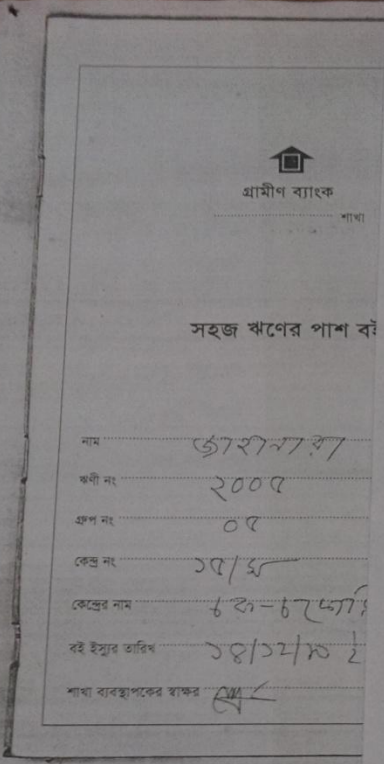 গ্রামীণ ব্যাংক
শাখা
সহজ ঋণের পাশ বই
নাম জাহানারা
ঋণী নং ২০০৫
গ্রুপ নং ০৫
কেন্দ্র নং ১৫/ম
কেন্দ্রের নাম
বই ইস্যুর তারিখ ১৪/১২/১০
শাখা ব্যবস্থাপকের স্বাক্ষর